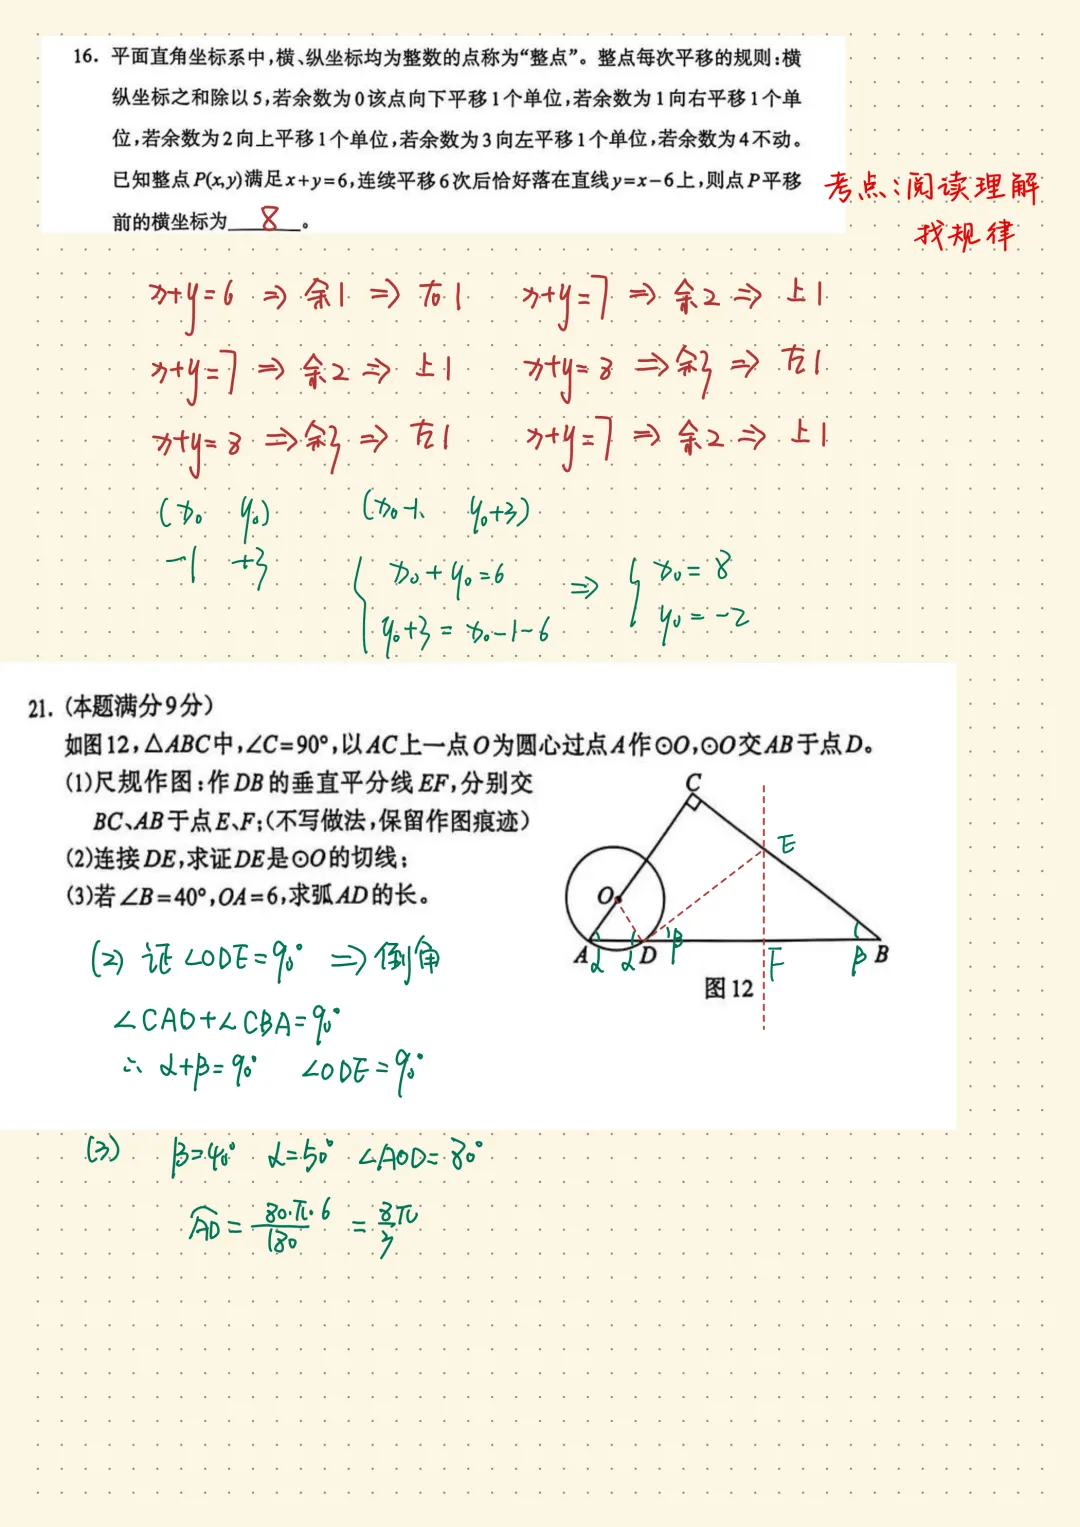 16. 平面直角坐标系中,横、纵坐标均为整数的点称为“整点”。整点每次平移的规则:横
纵坐标之和除以5,若余数为0该点向下平移1个单位,若余数为1向右平移1个单
位,若余数为2向上平移1个单位,若余数为3向左平移1个单位,若余数为4不动。
已知整点P(x,y)满足x+y=6,连续平移6次后恰好落在直线y=x-6上,则点P平移
前的横坐标为 8 。
考点:阅读理解
找规律
x+y=6 ⇒ 余1 ⇒ 右1 x+y=7 ⇒ 余2 ⇒ 上1
x+y=7 ⇒ 余2 ⇒ 上1 x+y=8 ⇒ 余3 ⇒ 左1
x+y=8 ⇒ 余3 ⇒ 左1 x+y=7 ⇒ 余2 ⇒ 上1
(x₀ y₀) (x₀-1, y₀+3)
-1 +3
{ x₀+y₀=6 ⇒ { x₀=8
y₀+3=x₀-1-6 y₀=-2
21. (本题满分9分)
如图12,△ABC中,∠C=90°,以AC上一点O为圆心过点A作⊙O,⊙O交AB于点D。
(1)尺规作图:作DB的垂直平分线EF,分别交
BC、AB于点E、F;(不写做法,保留作图痕迹)
(2)连接DE,求证DE是⊙O的切线;
(3)若∠B=40°,OA=6,求弧AD的长。
C
E
O
A α α D β F β B
图12
(2) 证∠ODE=90° ⇒ 倒角
∠CAO+∠CBA=90°
∴ α+β=90° ∠ODE=90°
(3) β=40° α=50° ∠AOD=80°
⌒AD = 80·π·6/180 = 8π/3